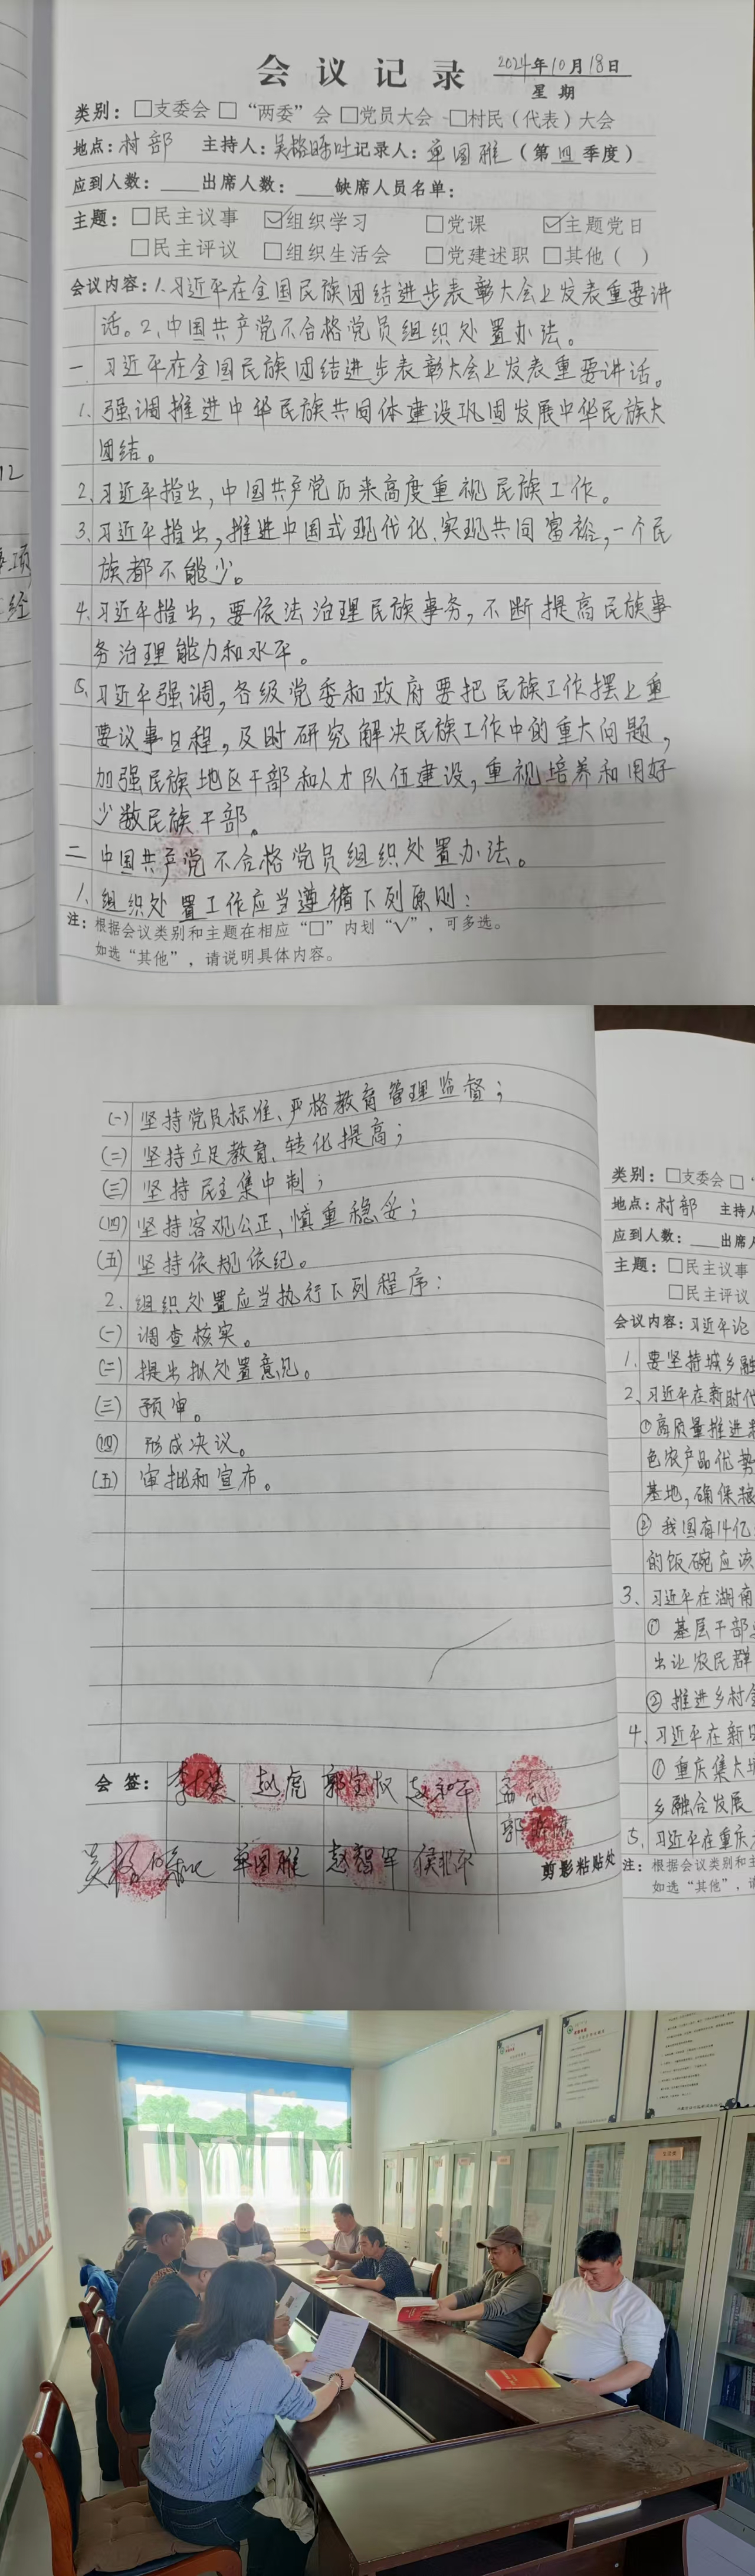 会议记录 2024年10月18日
星 期
类别：□支委会 □“两委”会 □党员大会 □村民（代表）大会
地点：村部 主持人：吴格日吐 记录人：单国雅（第四季度）
应到人数：____出席人数：____缺席人员名单：
主题：□民主议事 ☑组织学习 □党课 ☑主题党日
□民主评议 □组织生活会 □党建述职 □其他（ ）
会议内容：1.习近平在全国民族团结进步表彰大会上发表重要讲
话。2.中国共产党不合格党员组织处置办法。
一 习近平在全国民族团结进步表彰大会上发表重要讲话。
1. 强调推进中华民族共同体建设巩固发展中华民族大
团结。
2、习近平指出，中国共产党历来高度重视民族工作。
3、习近平指出，推进中国式现代化、实现共同富裕，一个民
族都不能少。
4、习近平指出，要依法治理民族事务，不断提高民族事
务治理能力和水平。
5、习近平强调，各级党委和政府要把民族工作摆上重
要议事日程，及时研究解决民族工作中的重大问题，
加强民族地区干部和人才队伍建设，重视培养和用好
少数民族干部。
二 中国共产党不合格党员组织处置办法。
1、组织处置工作应当遵循下列原则：
注：根据会议类别和主题在相应“□”内划“√”，可多选。
如选“其他”，请说明具体内容。
12
事项
经
(一) 坚持党员标准、严格教育管理监督；
(二) 坚持立足教育、转化提高；
(三) 坚持民主集中制；
(四) 坚持客观公正，慎重稳妥；
(五) 坚持依规依纪。
2. 组织处置应当执行下列程序：
(一) 调查核实。
(二) 提出拟处置意见。
(三) 预审。
(四) 形成决议。
(五) 审批和宣布。
会签： 赵虎 郭宝权
单国雅 赵智军 侯北平
剪影粘贴处
类别：□支委会 □
地点：村部 主持人
应到人数：____出席人
主题：□民主议事
□民主评议
会议内容：习近平论
1. 要坚持城乡融
2、习近平在新时代
①高质量推进
色农产品优势
基地，确保粮
② 我国有14亿
的饭碗应该
3、习近平在湖南
① 基层干部
出让农民群
② 推进乡村全
4、习近平在新
① 重庆集大
乡融合发展
5、习近平在重庆
注：根据会议类别和主
如选“其他”，请